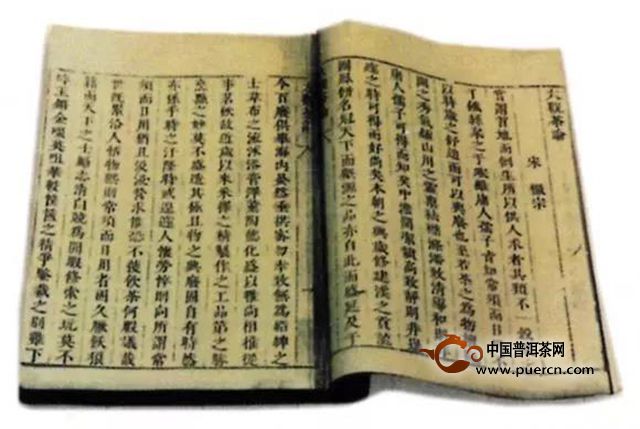 大觀茶論
宋 徽宗
嘗謂首地而倒生所以供人求者其類不一穀
于饑絲枲之于寒雖庸人孺子皆知常須而日
以時歲之舒迫而可以興廢也至若茶之為物
閩之秀氣鍾山川之靈稟祛襟滌滯致清導和則
庸人孺子可得而知矣中澹閒潔韻高致靜則非遑
遽之時可得而好尚矣本朝之興歲修建溪之貢龍
團鳳餅名冠天下而壑源之品亦自此而盛延及于
今百廢俱舉海內晏然垂拱密勿幸致無為縉紳之
士韋布之流沐浴膏澤薰陶德化盛以雅尚相推從
事茗飲故近歲以來采擇之精製作之工品第之勝
烹點之妙莫不盛造其極且物之興廢固自有時然
亦係乎時之汙隆時或遑遽人懷勞悴則向所謂常
須而日用猶且汲汲營求惟恐不獲飲茶何暇議哉
世既累洽人恬物熙則常須而日用者固久厭飫狼
籍而天下之士勵志清白競為閒暇修索之玩莫不
碎玉鏘金啜英咀華較篋笥之精爭鑒裁之別雖下
中国普洱茶网
www.puercn.com